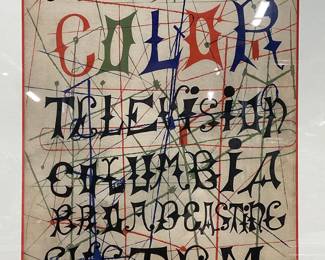 COLOR
TELEVISION
COLUMBIA
BROADCASTING
SYSTEM